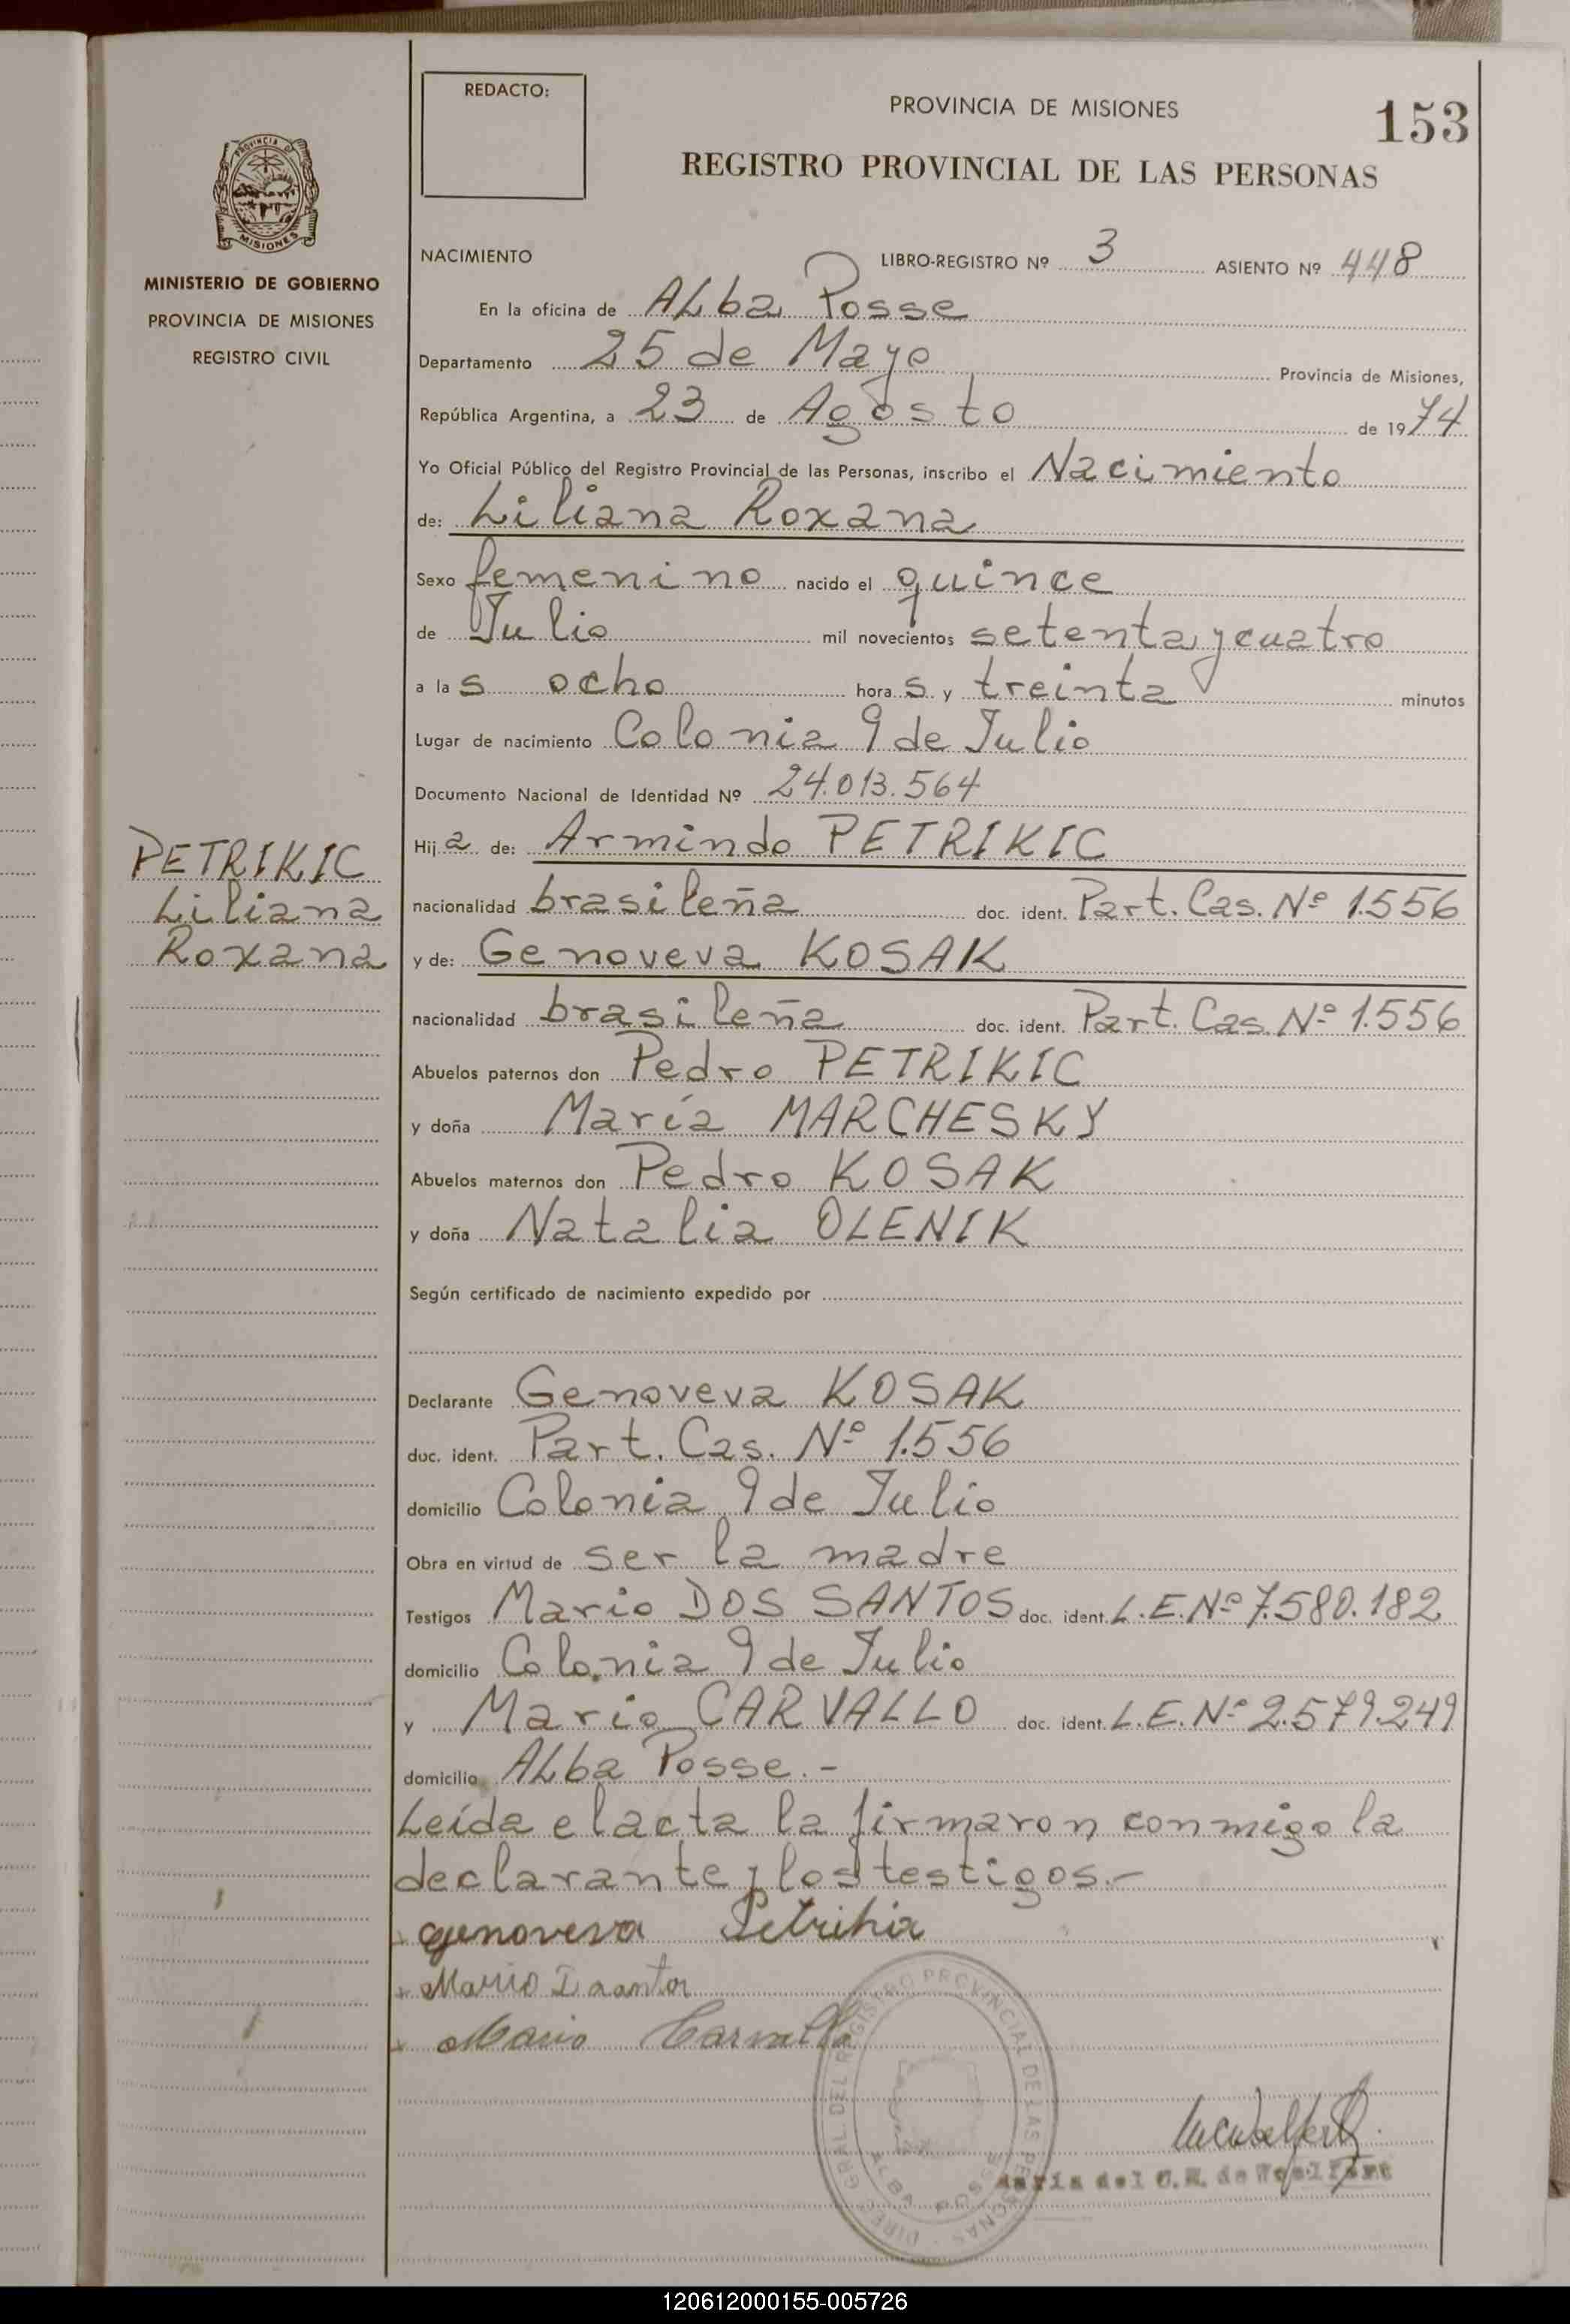 REDACTO:
PROVINCIA DE MISIONES
153
REGISTRO PROVINCIAL DE LAS PERSONAS
PROVINCIA DE MISIONES
MINISTERIO DE GOBIERNO
PROVINCIA DE MISIONES
REGISTRO CIVIL
NACIMIENTO LIBRO-REGISTRO Nº 3 ASIENTO Nº 448
En la oficina de Alba Posse
Departamento 25 de Mayo Provincia de Misiones,
República Argentina, a 23 de Agosto de 1974
Yo Oficial Público del Registro Provincial de las Personas, inscribo el Nacimiento
de: Liliana Roxana
Sexo femenino nacido el quince
de Julio mil novecientos setenta y cuatro
a las ocho horas y treinta minutos
Lugar de nacimiento Colonia 9 de Julio
Documento Nacional de Identidad Nº 24.013.564
PETRIKIC
Liliana
Roxana
Hija de: Armindo PETRIKIC
nacionalidad brasileña doc. ident. Part. Cas. Nº 1.556
y de: Genoveva KOSAK
nacionalidad brasileña doc. ident. Part. Cas. Nº 1.556
Abuelos paternos don Pedro PETRIKIC
y doña María MARCHESKY
Abuelos maternos don Pedro KOSAK
y doña Natalia OLENIK
Según certificado de nacimiento expedido por
Declarante Genoveva KOSAK
doc. ident. Part. Cas. Nº 1.556
domicilio Colonia 9 de Julio
Obra en virtud de ser la madre
Testigos Mario DOS SANTOS doc. ident. L.E. Nº 7.580.182
domicilio Colonia 9 de Julio
y Mario CARVALLO doc. ident. L.E. Nº 2.579.249
domicilio Alba Posse.-
Leída el acta la firmaron conmigo la
declarante y los testigos.-
Genoveva
Mario
Mario Carvallo
DIREC. GRAL. DEL REGISTRO PROVINCIAL DE LAS PERSONAS
ALBA POSSE
María del C.
120612000155-005726